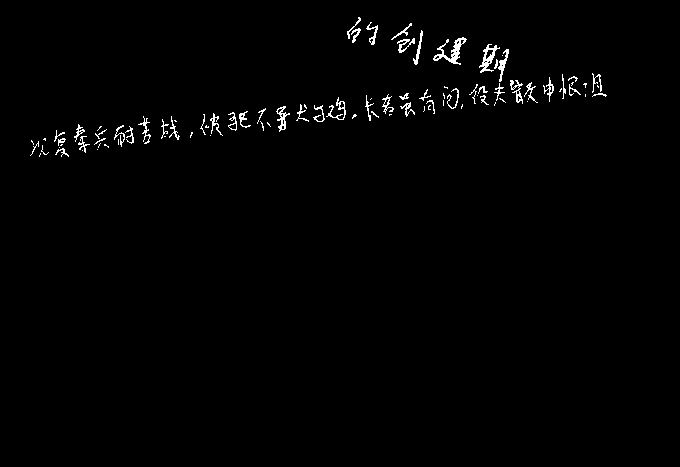 的创建期
况复秦兵耐苦战,被驱不异犬与鸡。长者虽有问,役夫敢申恨?且